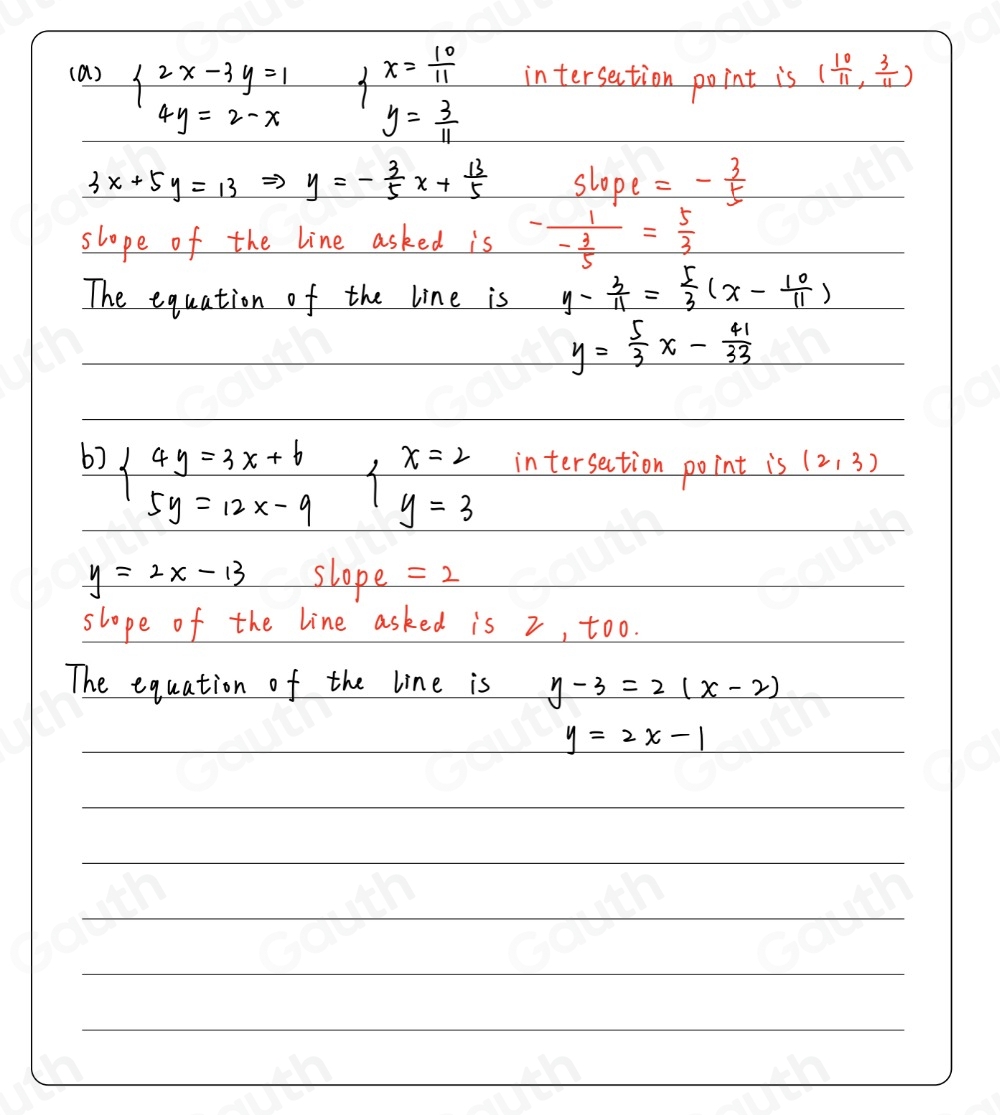 (a) { 2x-3y=1 { x=10/11 intersection point is (10/11, 3/11)
4y=2-x y=3/11
3x+5y=13 ⇒ y=-3/5x+13/5 slope = -3/5
slope of the line asked is -1/(-3/5) = 5/3
The equation of the line is y-3/11=5/3(x-10/11)
y=5/3x-41/33
b) { 4y=3x+6 { x=2 intersection point is (2,3)
5y=12x-9 y=3
y=2x-13 slope=2
slope of the line asked is 2, too.
The equation of the line is y-3=2(x-2)
y=2x-1